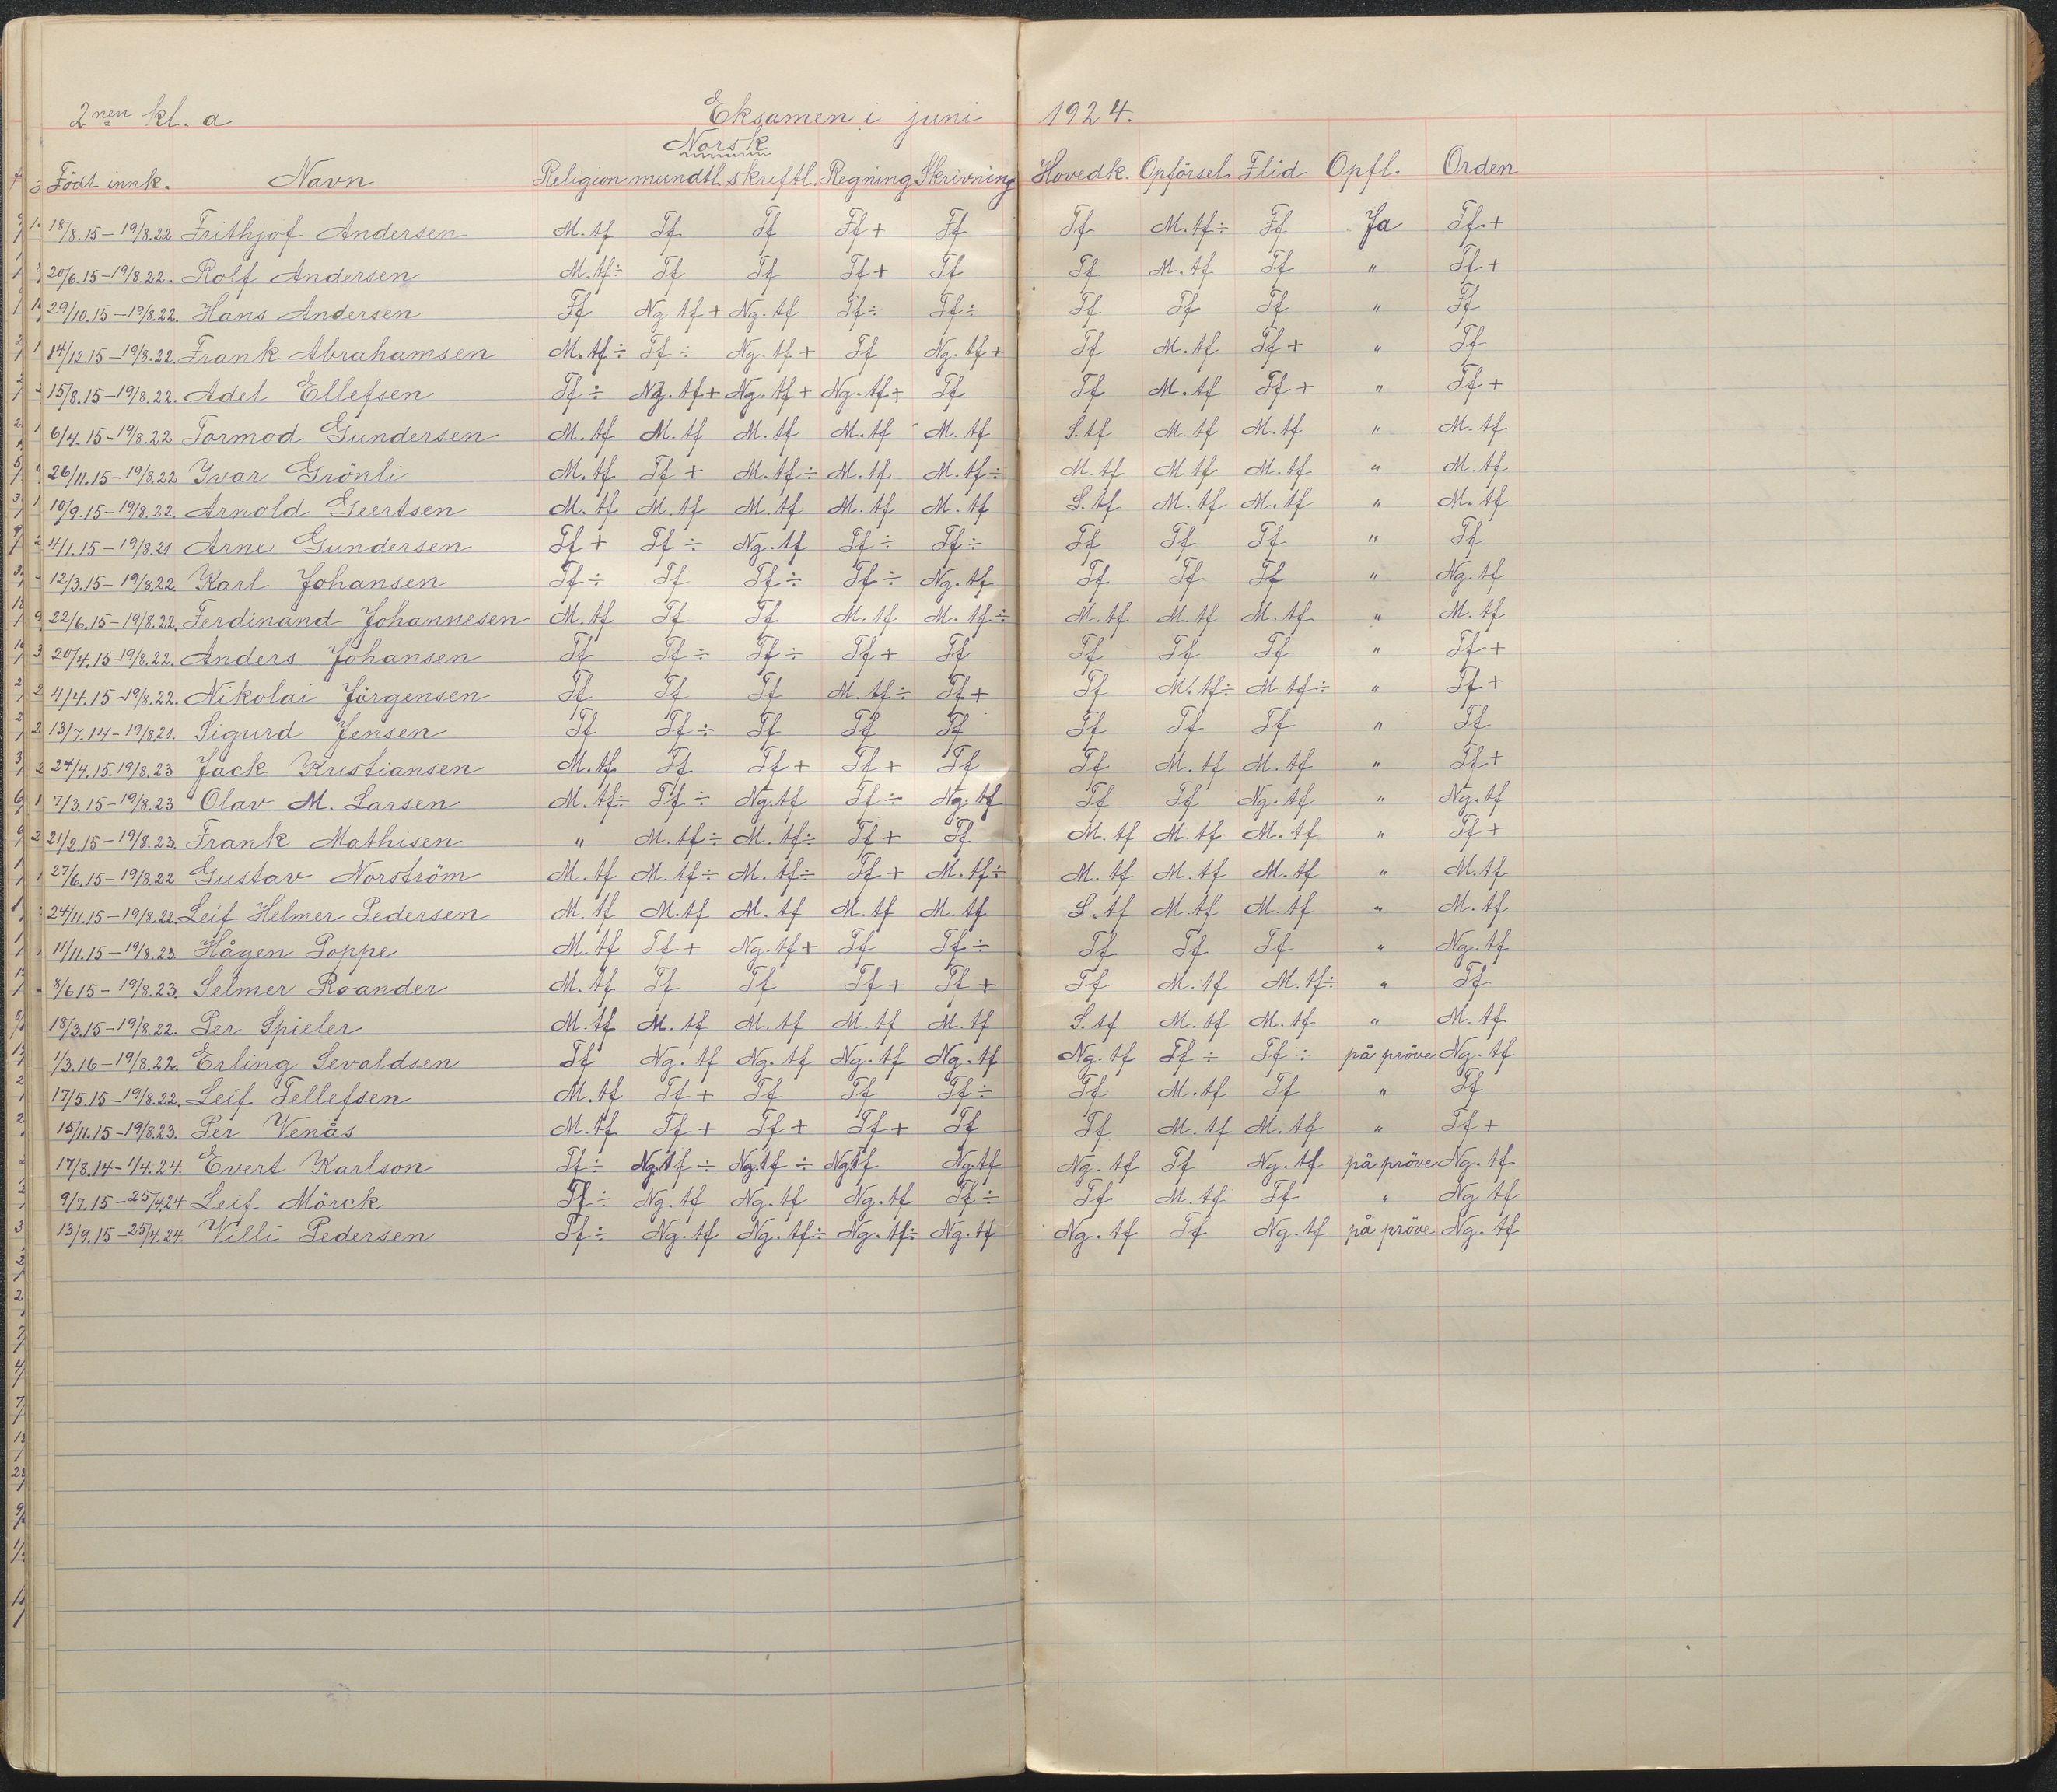 2nen kl. a Eksamen i juni 1924.
Norsk
Födt innk. Navn Religion mundtl. skreftl. Regning Skrivning Hovedk. Opförsel. Flid Opfl. Orden
18/8.15-19/8.22 Frithjof Andersen M.tf Tf Tf Tf+ Tf Tf M.tf÷ Tf Ja Tf+
20/6.15-19/8.22. Rolf Andersen M.tf÷ Tf Tf Tf+ Tf Tf M.tf Tf " Tf+
29/10.15-19/8.22. Hans Andersen Tf Ng tf+ Ng.tf Tf÷ Tf÷ Tf Tf Tf " Tf
14/12.15-19/8.22. Frank Abrahamsen M.tf÷ Tf÷ Ng.tf+ Tf Ng.tf+ Tf M.tf Tf+ " Tf
15/8.15-19/8.22. Adel Ellefsen Tf÷ Ng.tf+ Ng.tf+ Ng.tf+ Tf Tf M.tf Tf+ " Tf+
6/4.15-19/8.22 Tormod Gundersen M.tf M.tf M.tf M.tf M.tf S.tf M.tf M.tf " M.tf
26/11.15-19/8.22 Yvar Grönli M.tf Tf+ M.tf÷ M.tf M.tf÷ M.tf M.tf M.tf " M.tf
10/9.15-19/8.22. Arnold Geertsen M.tf M.tf M.tf M.tf M.tf S.tf M.tf M.tf " M.tf
4/1.15-19/8.21 Arne Gundersen Tf+ Tf÷ Ng.tf Tf÷ Tf÷ Tf Tf Tf " Tf
12/3.15-19/8.22. Karl Johansen Tf÷ Tf Tf÷ Tf÷ Ng.tf Tf Tf Tf " Ng.tf
22/6.15-19/8.22. Ferdinand Johannesen M.tf Tf Tf M.tf M.tf÷ M.tf M.tf M.tf " M.tf
20/4.15-19/8.22. Anders Johansen Tf Tf÷ Tf÷ Tf+ Tf Tf Tf Tf " Tf+
4/4.15-19/8.22. Nikolai Jörgensen Tf Tf Tf M.tf÷ Tf+ Tf M.tf÷ M.tf÷ " Tf+
13/7.14-19/8.21. Sigurd Jensen Tf Tf÷ Tf Tf Tf Tf Tf Tf " Tf
24/4.15.19/8.23 Jack Kristiansen M.tf Tf Tf+ Tf+ Tf Tf M.tf M.tf " Tf+
7/3.15-19/8.23 Olav M. Larsen M.tf÷ Tf÷ Ng.tf Tf÷ Ng.tf Tf Tf Ng.tf " Ng.tf
21/2.15-19/8.23. Frank Mathisen " M.tf÷ M.tf÷ Tf+ Tf M.tf M.tf M.tf " Tf+
27/6.15-19/8.22 Gustav Norström M.tf M.tf÷ M.tf÷ Tf+ M.tf÷ M.tf M.tf M.tf " M.tf
24/11.15-19/8.22. Leif Helmer Pedersen M.tf M.tf M.tf M.tf M.tf S.tf M.tf M.tf " M.tf
11/11.15-19/8.23 Hågen Poppe M.tf Tf+ Ng.tf+ Tf Tf÷ Tf Tf Tf " Ng.tf
8/6 15-19/8.23. Selmer Roander M.tf Tf Tf Tf+ Tf+ Tf M.tf M.tf÷ " Tf
18/3.15-19/8.22. Per Spieler M.tf M.tf M.tf M.tf M.tf S.tf M.tf M.tf " M.tf
1/3.16-19/8.22. Erling Sevaldsen Tf Ng.tf Ng.tf Ng.tf Ng.tf Ng.tf Tf÷ Tf÷ på pröve Ng.tf
17/5.15-19/8.22. Leif Tellefsen M.tf Tf+ Tf Tf Tf÷ Tf M.tf Tf " Tf
15/11.15-19/8.23. Per Venås M.tf Tf+ Tf+ Tf+ Tf Tf M.tf M.tf " Tf+
17/8.14-1/4.24. Evert Karlson Tf÷ Ng.tf÷ Ng.tf÷ Ng.tf Ng.tf Ng.tf Tf Ng.tf på pröve Ng.tf
9/7.15-25/4.24 Leif Mörck Tf÷ Ng.tf Ng.tf Ng.tf Tf÷ Tf M.tf Tf " Ng.tf
13/9.15-25/4.24. Villi Pedersen Tf÷ Ng.tf Ng.tf÷ Ng.tf÷ Ng.tf Ng.tf Tf Ng.tf på pröve Ng.tf